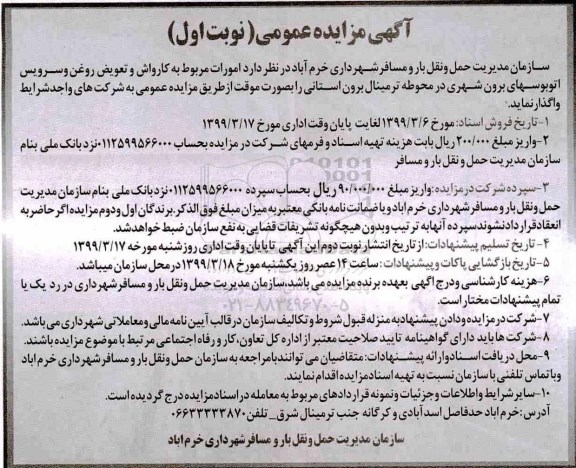 آگهی مزایده عمومی(نوبت اول)
سازمان مدیریت حمل ونقل بار و مسافر شهرداری خرم آباد در نظر دارد امورات مربوط به کارواش و تعویض روغن وسرویس
اتوبوسهای برون شهری در محوطه ترمینال برون استانی را بصورت موقت از طریق مزایده عمومی به شرکت های واجد شرایط
واگذار نماید.
۱-تاریخ فروش اسناد: مورخ ۱۳۹۹/۳/۶ لغایت پایان وقت اداری مورخ ۱۳۹۹/۳/۱۷
۲-واریز مبلغ ۲۰۰/۰۰۰ ریال بابت هزینه تهیه اسناد و فرمهای شرکت در مزایده بحساب ۰۱۱۲۵۹۹۵۶۶۰۰۰ نزد بانک ملی بنام
سازمان مدیریت حمل و نقل بار و مسافر
۳-سپرده شرکت در مزایده: واریز مبلغ ۹۰/۰۰۰/۰۰۰ ریال بحساب سپرده ۰۱۱۲۵۹۹۵۶۶۰۰۰ نزد بانک ملی بنام سازمان مدیریت
حمل و نقل بار و مسافر شهرداری خرم آباد و یا ضمانت نامه بانکی معتبر به میزان مبلغ فوق الذکر. برندگان اول و دوم مزایده اگر حاضر به
انعقاد قرارداد نشوند سپرده آنها به ترتیب و بدون هیچگونه تشریفات قضایی به نفع سازمان ضبط خواهد شد.
۴- تاریخ تسلیم پیشنهادات: از تاریخ انتشار نوبت دوم این آگهی تا پایان وقت اداری روز شنبه مورخه ۱۳۹۹/۳/۱۷
۵- تاریخ بازگشایی پاکات و پیشنهادات: ساعت ۱۴ عصر روز یکشنبه مورخ ۱۳۹۹/۳/۱۸ در محل سازمان میباشد.
۶-هزینه کارشناسی و درج آگهی بعهده برنده مزایده می باشد. سازمان مدیریت حمل و نقل بار و مسافر شهرداری در رد یک یا
تمام پیشنهادات مختار است.
۰۲۱-۸۸۳۴۹۶۷۰-۵
۷-شرکت در مزایده و دادن پیشنهاد به منزله قبول شروط و تکالیف سازمان در قالب آیین نامه مالی و معاملاتی شهرداری می باشد.
۸-شرکت ها باید دارای گواهینامه تایید صلاحیت معتبر از اداره کل تعاون، کار و رفاه اجتماعی مرتبط با موضوع مزایده باشند.
۹-محل دریافت اسناد و ارائه پیشنهادات: متقاضیان می توانند با مراجعه به سازمان حمل و نقل بار و مسافر شهرداری خرم آباد
و یا تماس تلفنی با سازمان نسبت به تهیه اسناد مزایده اقدام نمایند.
۱۰-سایر شرایط و اطلاعات و جزئیات و نمونه قراردادهای مربوط به معامله در اسناد مزایده درج گردیده است.
آدرس: خرم آباد حدفاصل اسدآبادی و کرگانه جنب ترمینال شرق_ تلفن ۰۶۶۳۳۳۳۳۸۷۰
سازمان مدیریت حمل و نقل بار و مسافر شهرداری خرم آباد